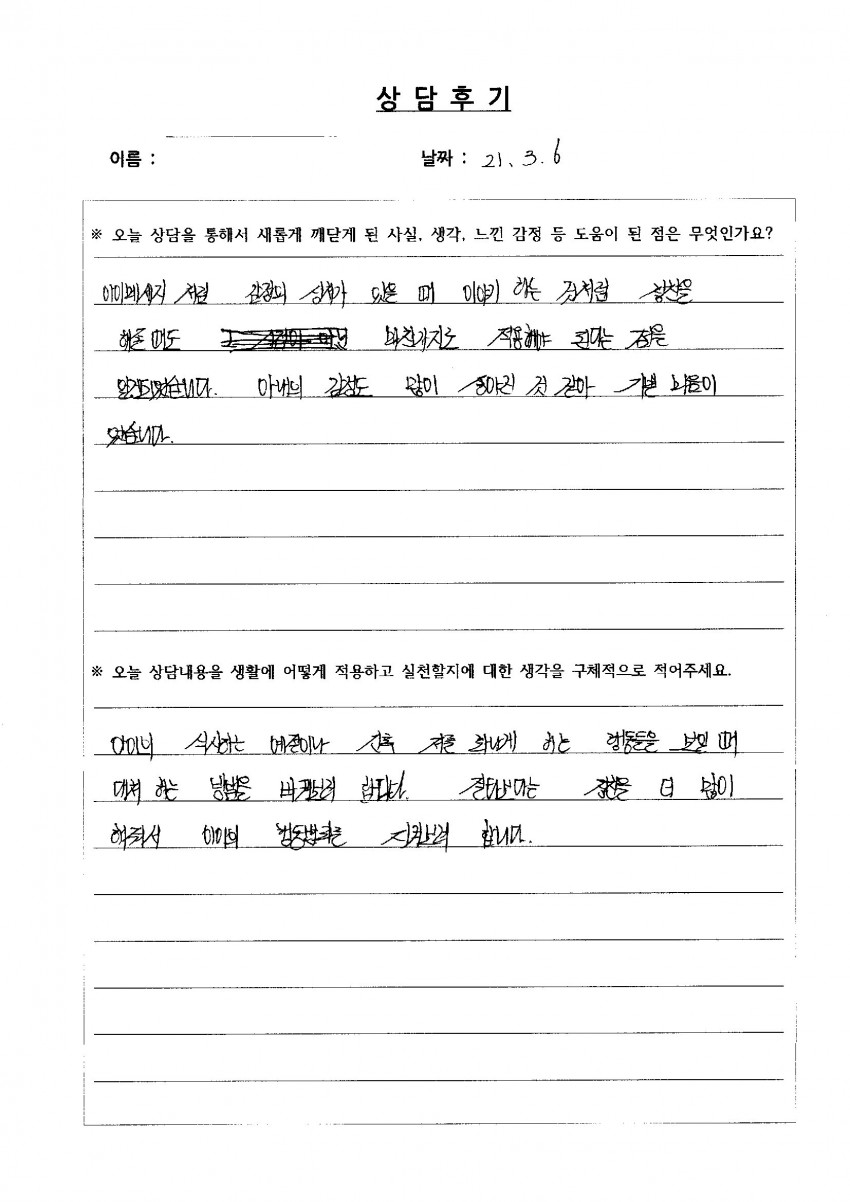 상 담 후 기
이름 :
날짜 : 21. 3. 6
※ 오늘 상담을 통해서 새롭게 깨닫게 된 사실, 생각, 느낀 감정 등 도움이 된 점은 무엇인가요?
아이메세지 처럼 감정의 상처가 있을 때 이야기 하는 것처럼 칭찬을
해줄 때도 마찬가지로 적용해야 된다는 점을
알게되었습니다. 아내의 감정도 많이 좋아진 것 같아
있었습니다.
※ 오늘 상담내용을 생활에 어떻게 적용하고 실천할지에 대한 생각을 구체적으로 적어주세요.
아이의 식사하는 예절이나 간혹 저를 화나게 하는 행동들을 보일 때
대처 하는 방법을 바꿔보려 합니다. 질타보다는 칭찬을 더 많이
해줘서 아이의 행동변화를 지켜보려 합니다.